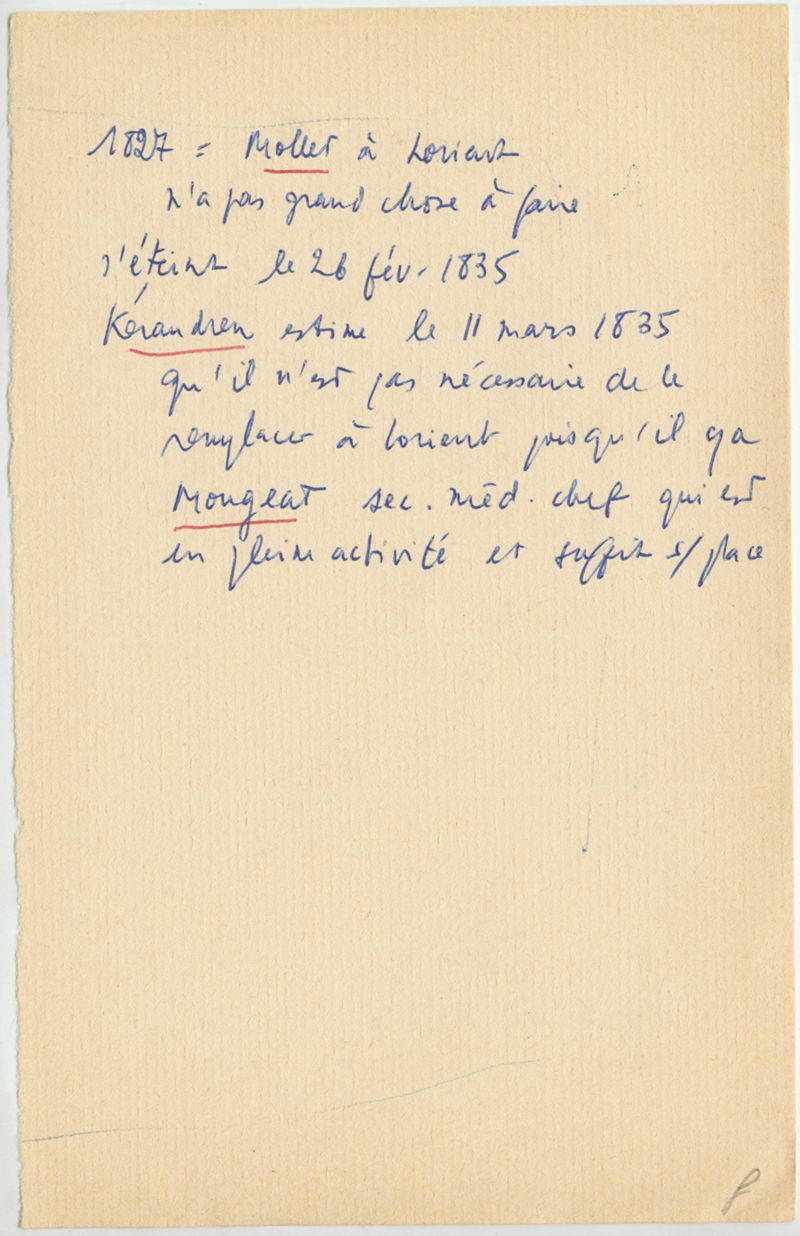 1827 = Mollet à Lorient
n'a pas grand chose à faire
s'éteint le 26 fév. 1835
Kérandren estime le 11 mars 1835
qu'il n'est pas nécessaire de le
remplacer à Lorient puisqu'il y a
Mongeat sec. méd. chef qui est
en pleine activité et suffit s/ place
8